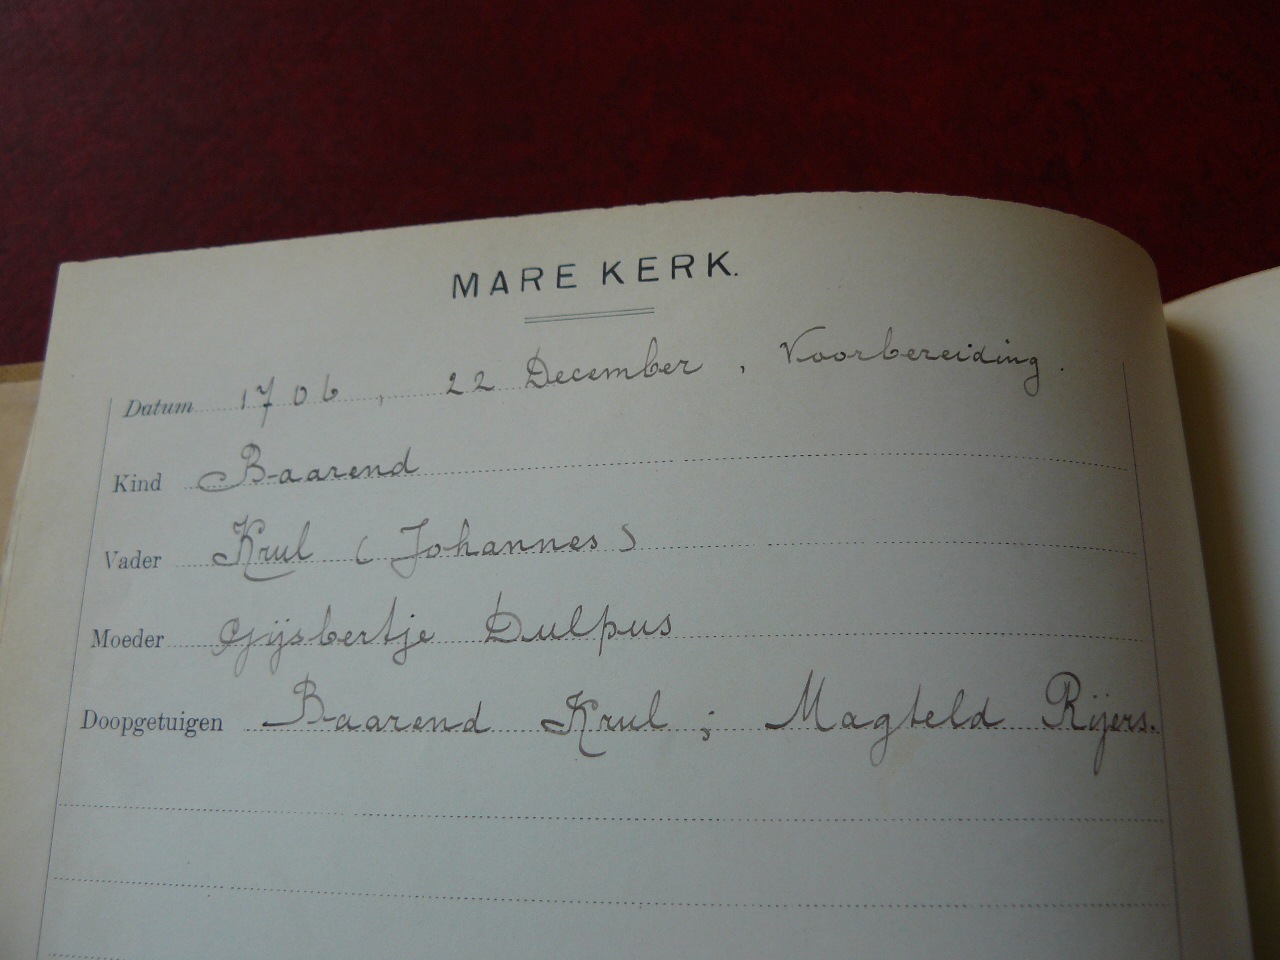 MARE KERK.
Datum 1706, 22 December, Voorbereiding.
Kind Baarend
Vader Krul (Johannes)
Moeder Gijsbertje Dulpus
Doopgetuigen Baarend Krul; Magteld Rijers.